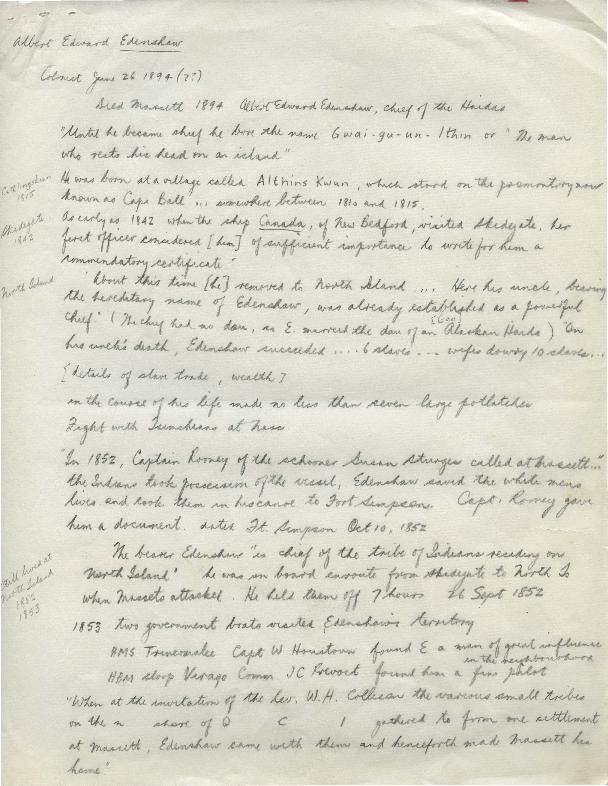 Albert Edward Edenshaw
Colonist June 26 1894 (??)
Died Massett 1894 Albert Edward Edenshaw, chief of the Haidas
"Until he became chief he bore the name Gwai-gu-un-lthin or "The man
who rests his head on an island"
He was born at a village called Althins Kwun, which stood on the promontory now
known as Cape Ball ... somewhere between 1810 and 1815.
1815
As early as 1842 when the ship Canada, of New Bedford, visited Skidegate, her
Skidegate
1842
first officer considered [him] of sufficient importance to write for him a
commendatory certificate"
North Island
"About this time [he] removed to North Island .... Here his uncle, bearing
the hereditary name of Edenshaw, was already established as a powerful
chief" (The chief had no dau, so E. married the dau of an Alaskan Haida) "On
his uncle's death, Edenshaw succeeded .... 6 slaves ... wifes dowry 10 slaves...
[details of slave trade, wealth]
in the course of his life made no less than seven large potlatches
Fight with Tsimsheans at Nass
"In 1852, Captain Rooney of the schooner Susan Sturges called at Massett..."
the Indians took possession of the vessel, Edenshaw saved the white mens
lives and took them in his canoe to Fort Simpson. Capt. Rooney gave
him a document. dated Ft. Simpson Oct 10, 1852
The bearer Edenshaw "is chief of the tribe of Indians residing on
North Island" he was on board enroute from Skidegate to North Is
when Massets attacked. He held them off 7 hours 26 Sept 1852
Still lived at
North Island
1852
1853
1853 two government boats visited Edenshaw's territory
HMS Trincomalee Capt W Houstoun found E a man of great influence
in the neighbourhood
HBM sloop Virago Comm. JC Prevost found him a fine pilot
"When at the invitation of the Rev. W.H. Collison the various small tribes
on the n shore of Q C I gathered to from one settlement
at Massett, Edenshaw came with them and henceforth made Massett his
home"